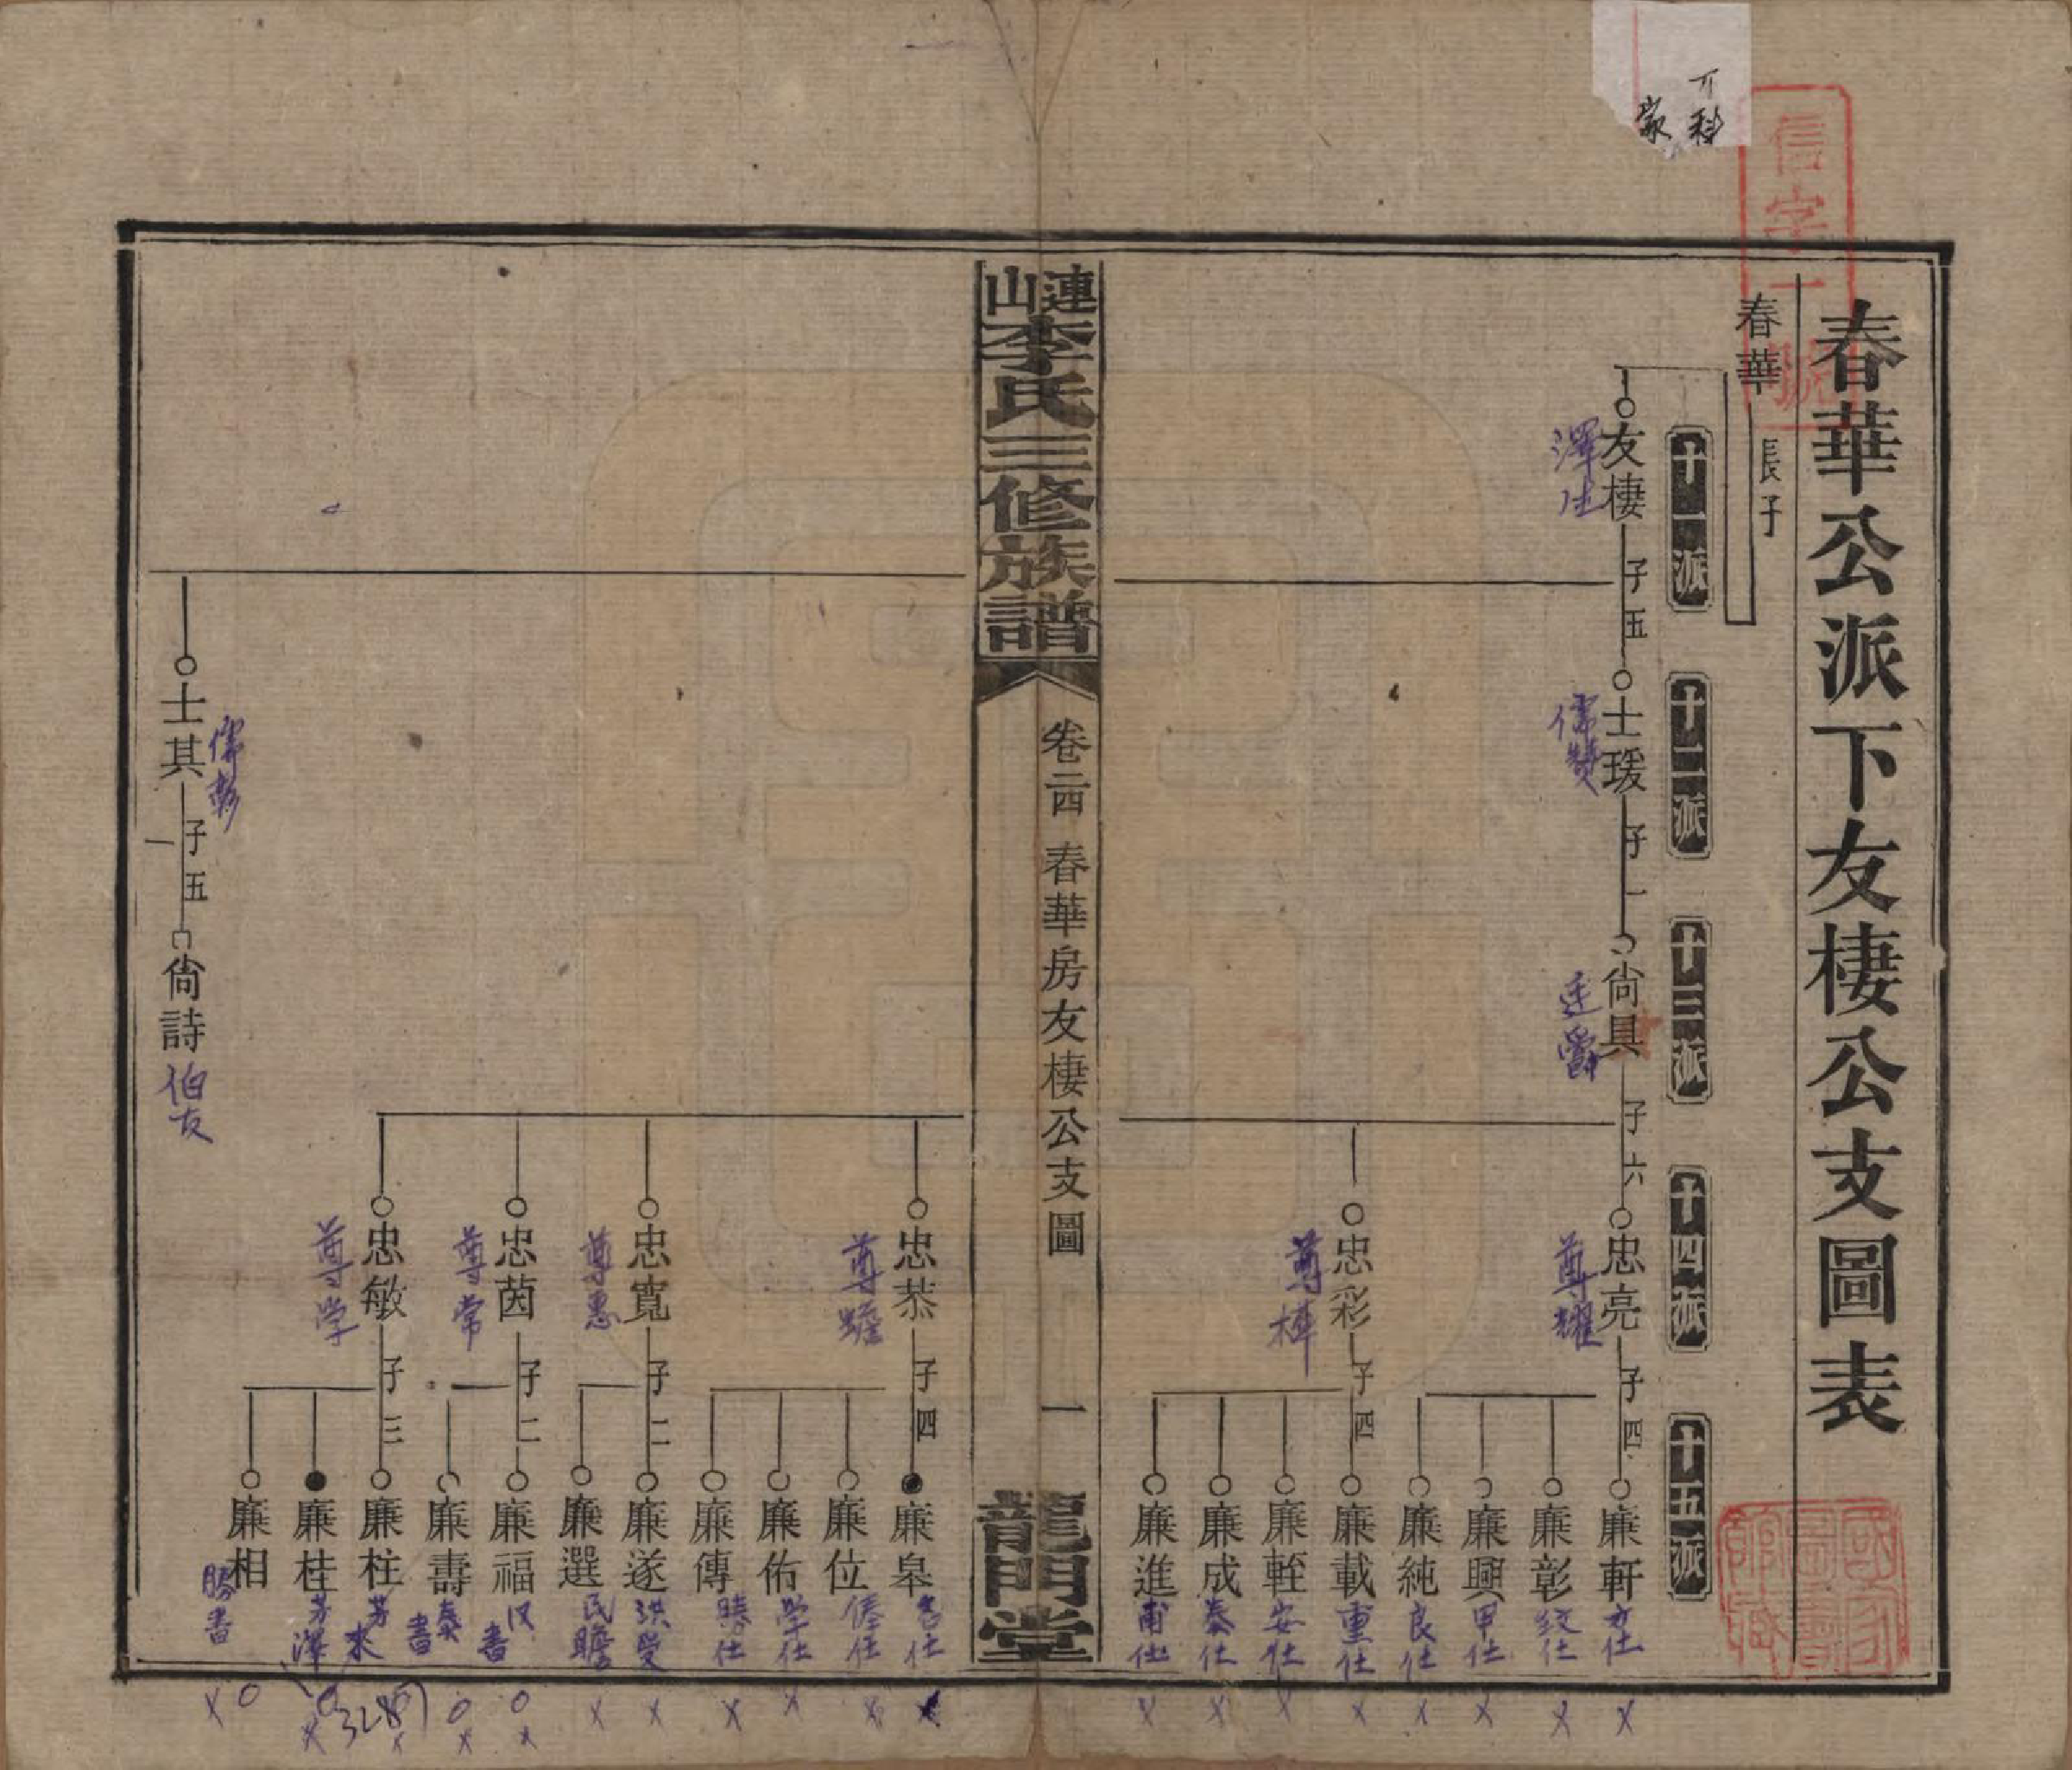 春華公派下友棲公支圖表
信字一號
春華 長子
十一派
十二派
十三派
十四派
十五派
友棲 子五
澤仕
士瑗 子一
儒贊
尙具 子六
廷爵
忠亮 子四
尊耀
廉軒
廉彰
紋仕
廉興
甲仕
廉純
良仕
忠彩 子四
尊樟
廉載
重仕
廉輊
安仕
廉成
泰仕
廉進
甫仕
連山李氏三修族譜
卷二四 春華房友棲公支圖
一
龍門堂
忠恭 子四
尊瞻
廉皋
廉位
俸仕
廉佑
学仕
廉傳
勝仕
忠寬 子二
尊惠
廉遂
洪受
廉選
民瞻
忠茵 子二
尊常
廉福
汉書
廉壽
泰書
忠敏 子三
尊学
廉柱
芳来
廉桂
芳澤
廉相
勝書
士其 子五
儒彰
尙詩
伯友
328